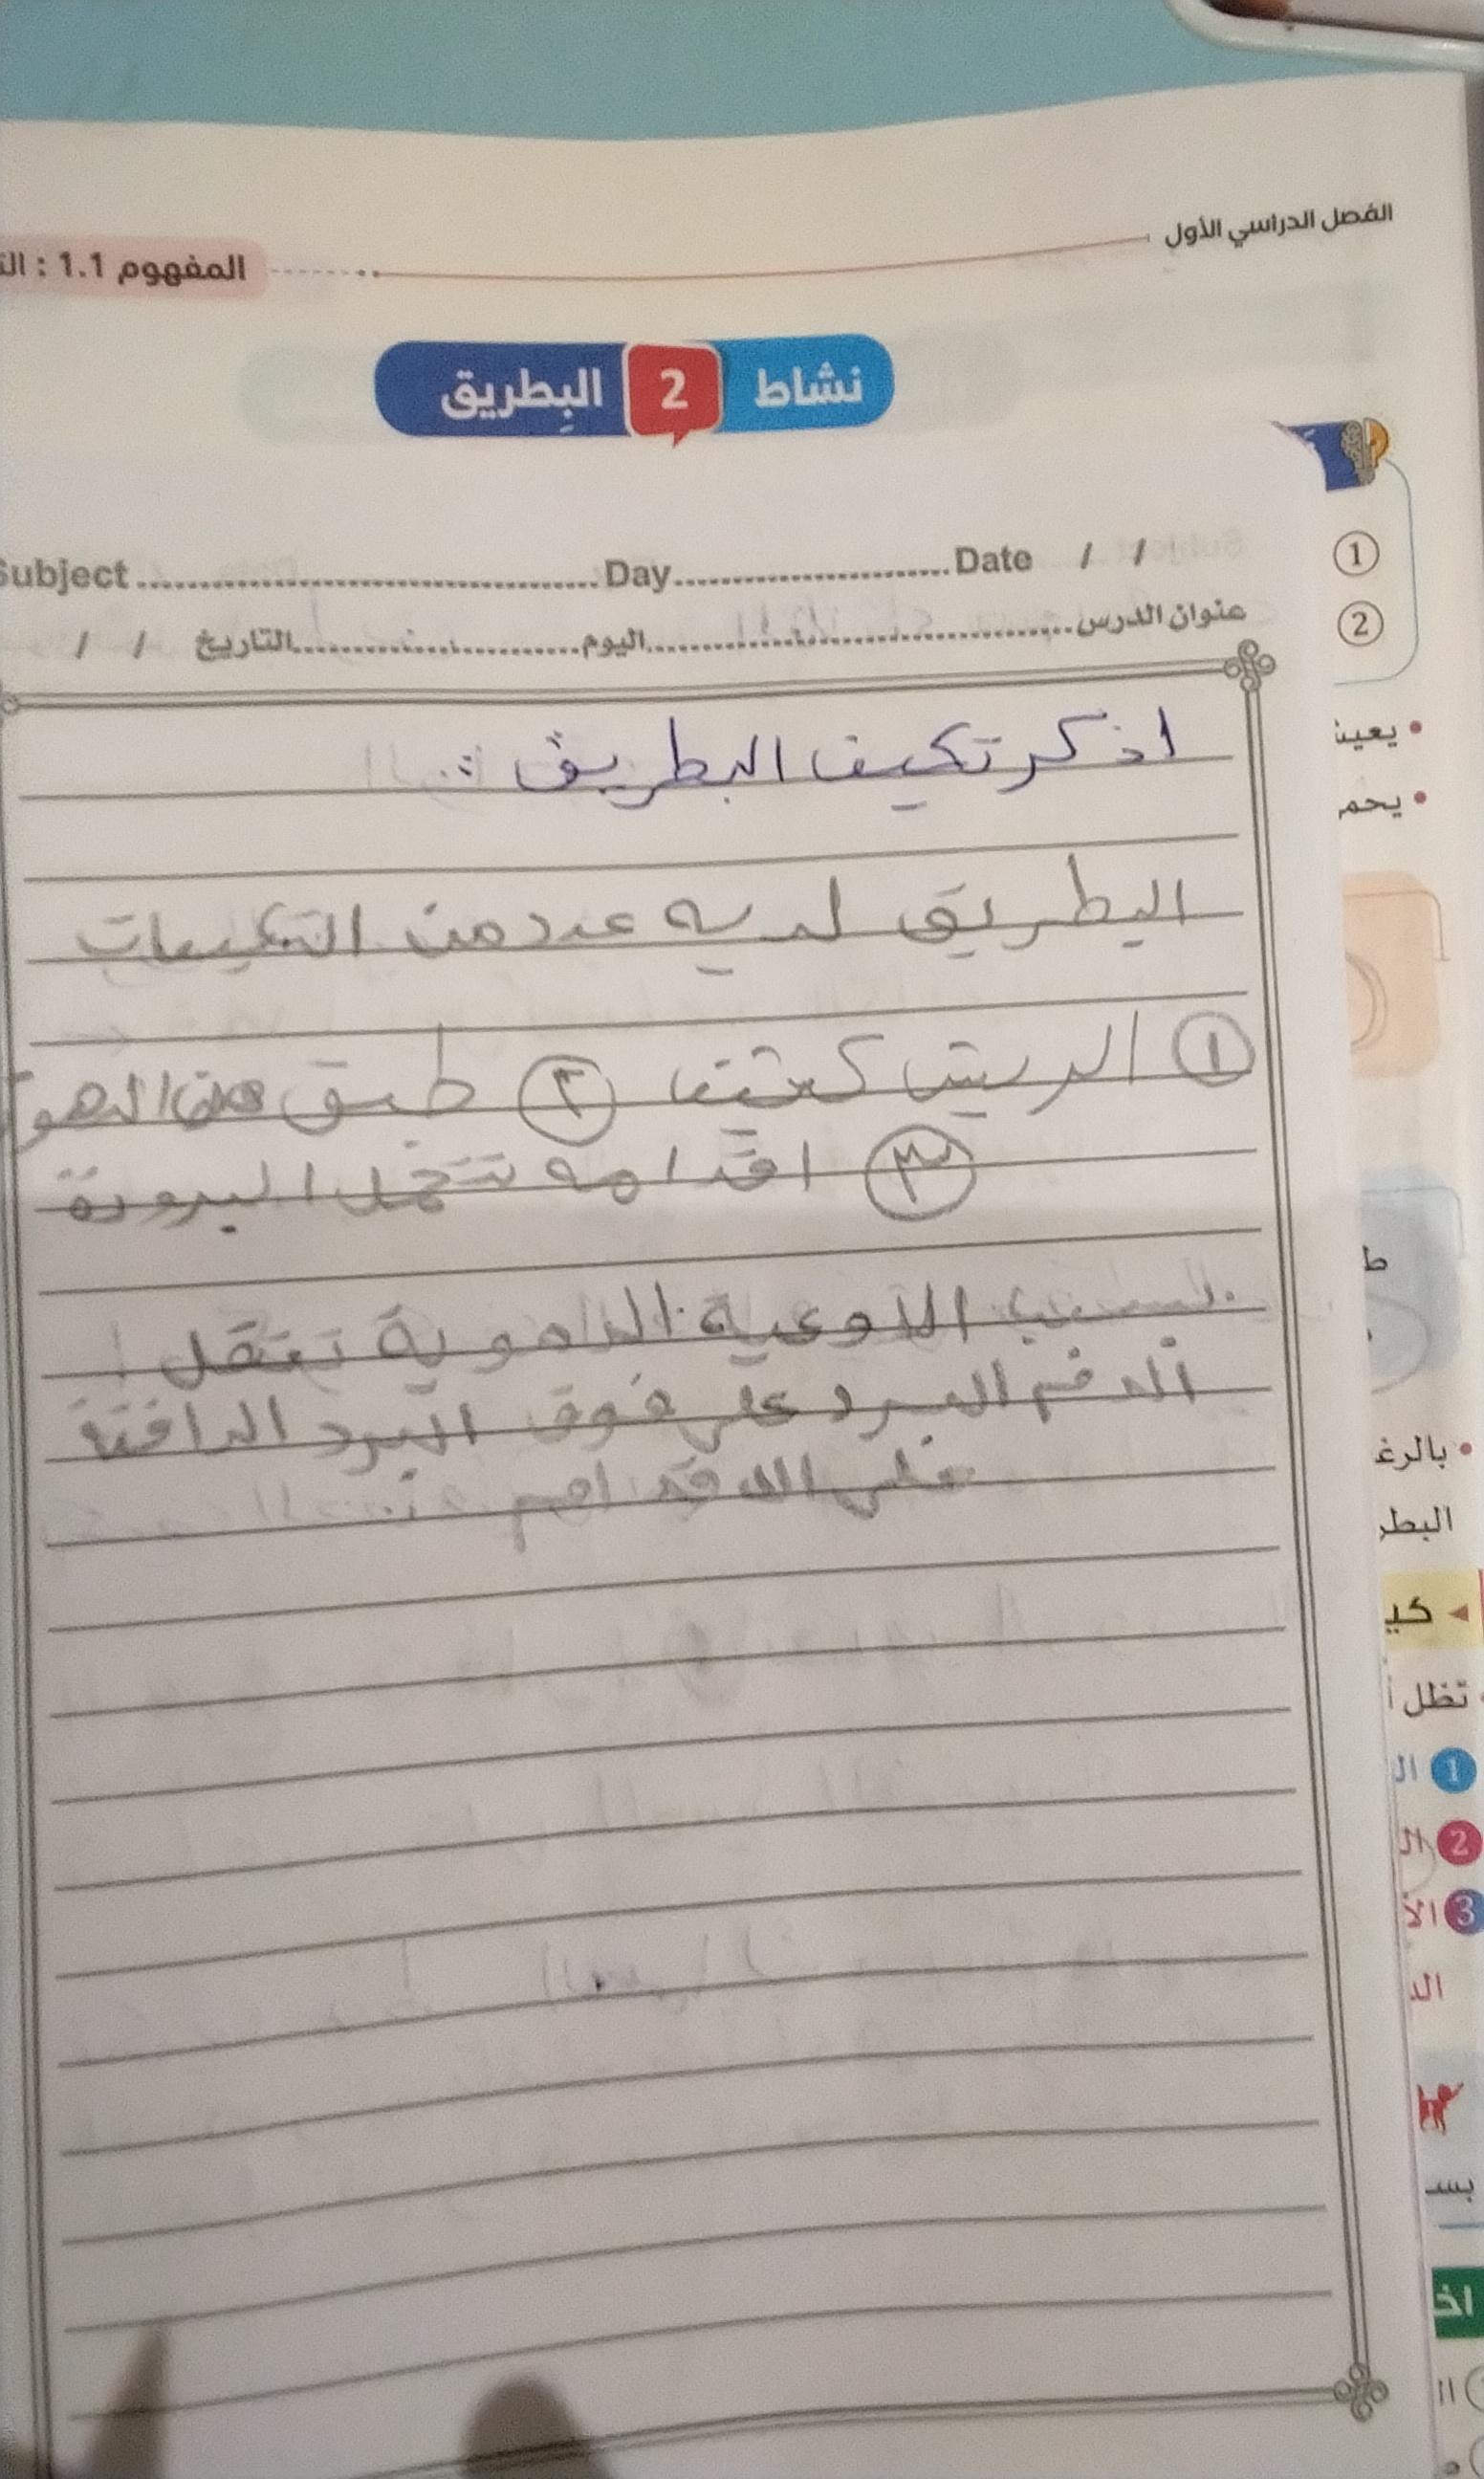 الفصل الدراسي الأول
المفهوم 1.1 :
نشاط 2 البِطريق
①
②
Subject Day Date / /
عنوان الدرس اليوم التاريخ / /
• يعين
• يحم
اذكر تكيف البطريق :
البطريق لديه عدد من التكيفات
① الريش كثيف ② طبق من الدهو
③ اقدامه تتحمل البرودة
بسبب الاوعية الدموية تنتقل
الدم البرد على فوق البرد الدافئة
على الاقدام
ط
• بالرغ
البطر
كي
تظل أ
1 ال
2 ال
3 الأ
الد
بسـ
اخ